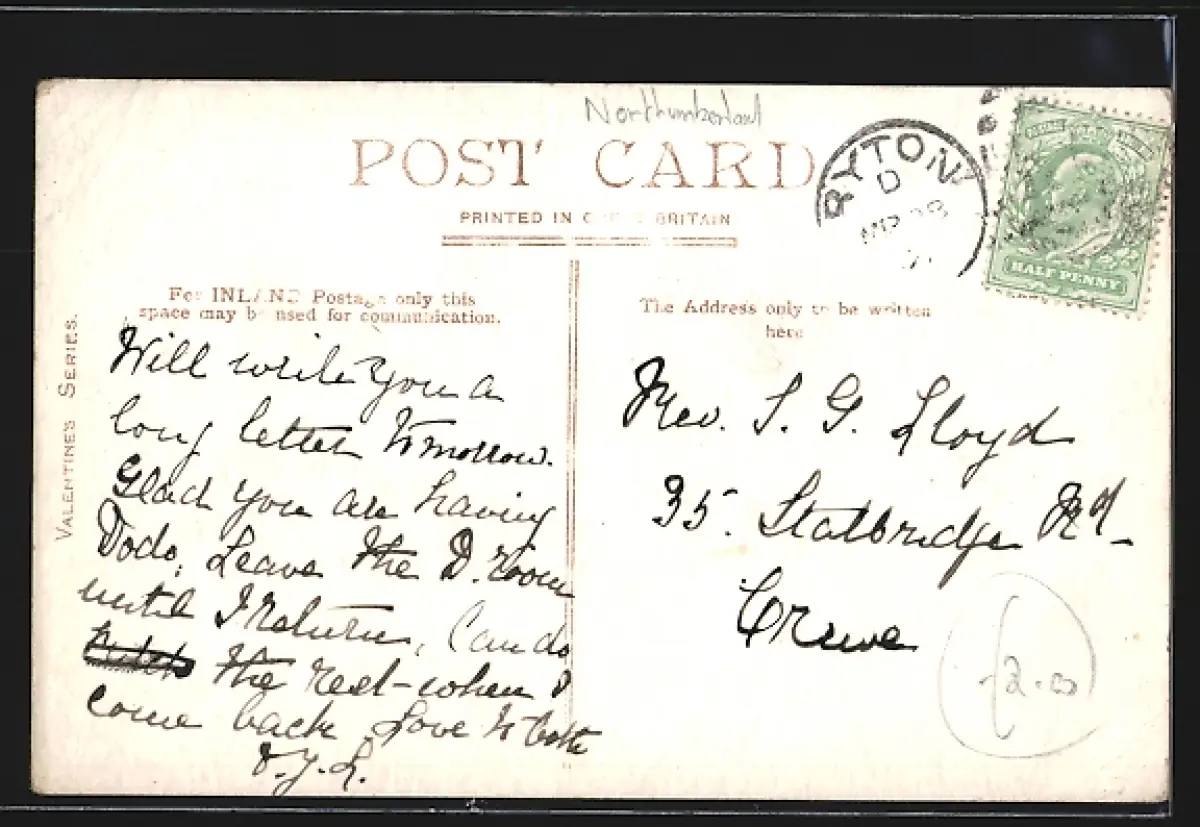 Northumberland
POST CARD
PRINTED IN GREAT BRITAIN
RYTON
D
HALF PENNY
VALENTINE'S SERIES.
For INLAND Postage only this
space may be used for communication.
Will write you a
long letter tomorrow.
Glad you are having
Dodo. Leave the D. room
until I return, Can do
the rest when I
come back. Love to both
J. L.
The Address only to be written
here
Rev. S. G. Lloyd
35. Stalbridge Rd
Crewe